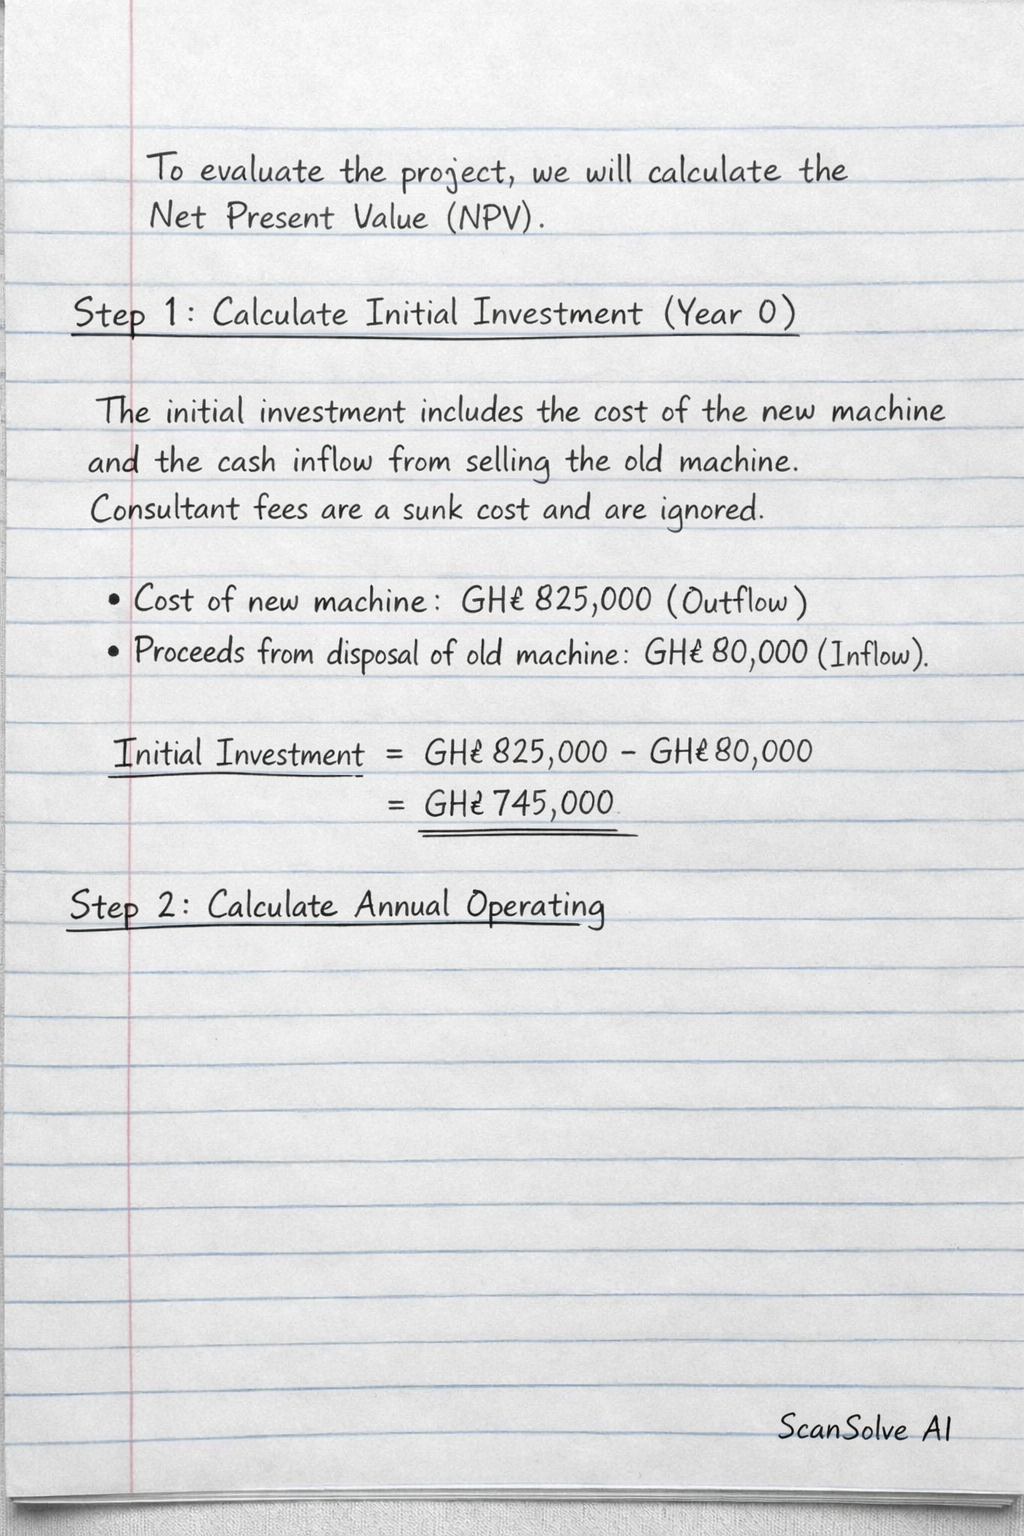 To evaluate the project, we will calculate the
Net Present Value (NPV).
Step 1: Calculate Initial Investment (Year 0)
The initial investment includes the cost of the new machine
and the cash inflow from selling the old machine.
Consultant fees are a sunk cost and are ignored.
• Cost of new machine: GH₵ 825,000 (Outflow)
• Proceeds from disposal of old machine: GH₵ 80,000 (Inflow).
Initial Investment = GH₵ 825,000 – GH₵ 80,000
= GH₵ 745,000
Step 2: Calculate Annual Operating
ScanSolve AI